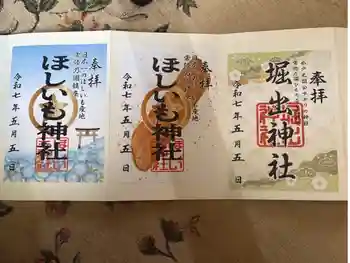 奉拝
日本一のほしいも産地
ほしいも神社
令和七年五月五日
奉拝
ほしいも神社
令和七年五月五日
奉拝
堀出神社
令和七年五月五日